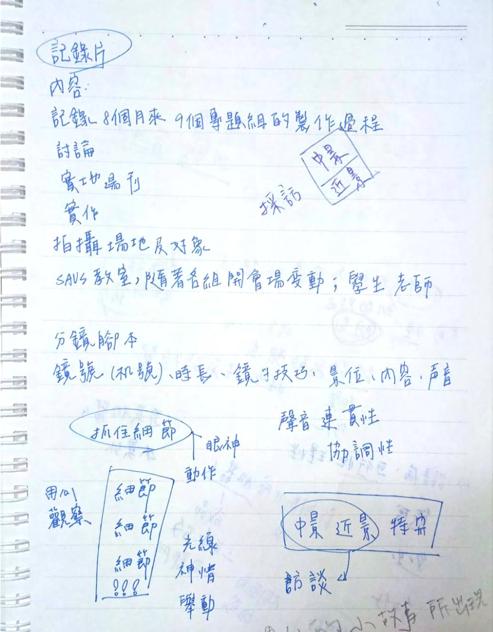 記錄片
內容:
記錄 8個月來 9個專題組的製作過程
討論
實地場刊
實作
採訪
中景
近景
拍攝場地及对象
SAVS教室,隨著各組開會場變動;學生 老師
分鏡腳本
鏡號(机號)、時長、鏡頭技巧、景位、內容、声音
聲音連貫性
協調性
抓住細節
眼神
動作
用心
觀察
細節
細節
細節
???
光線
神情
舉動
中景 近景 特寫
訪談
小故事 所